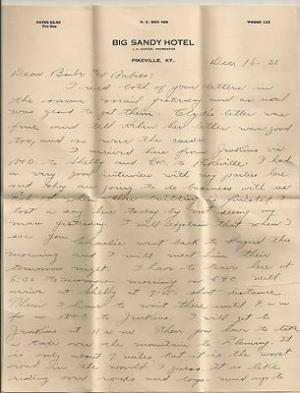 RATES $2.50
Per Day
P. O. BOX 488
PHONE 122
BIG SANDY HOTEL
PIKEVILLE, KY.
Dec 16 - 21
Dear Bub and Babies:
I read both of your letters in
the same mail yesterday and as usual
was glad to get them. Clyde's letter was
fine and tell Wilma her letter was good
too, and so were the cards.
I arrived here from Jenkins via
B&O to Shelby and C&O to Pikeville. I had
a very good interview with my parties here
and they are going to do business with us
when building is finished. I
lost a day here today by not seeing my
man yesterday. I will explain that when I
see you. Charlie went back to Hazard this
morning and I will meet him there
tomorrow night. I have to leave here at
6:00 tomorrow morning on C&O will
arrive at Shelby at short distance.
Then I have to wait there until 9 a.m.
for B&O to Jenkins. I will get to
Jenkins at 11 a.m. Then you have to take
a taxi over the mountain to Fleming. It
is only about 7 miles, but it is the worst
road in the world I guess. It is like
riding over rocks and logs mixed up to